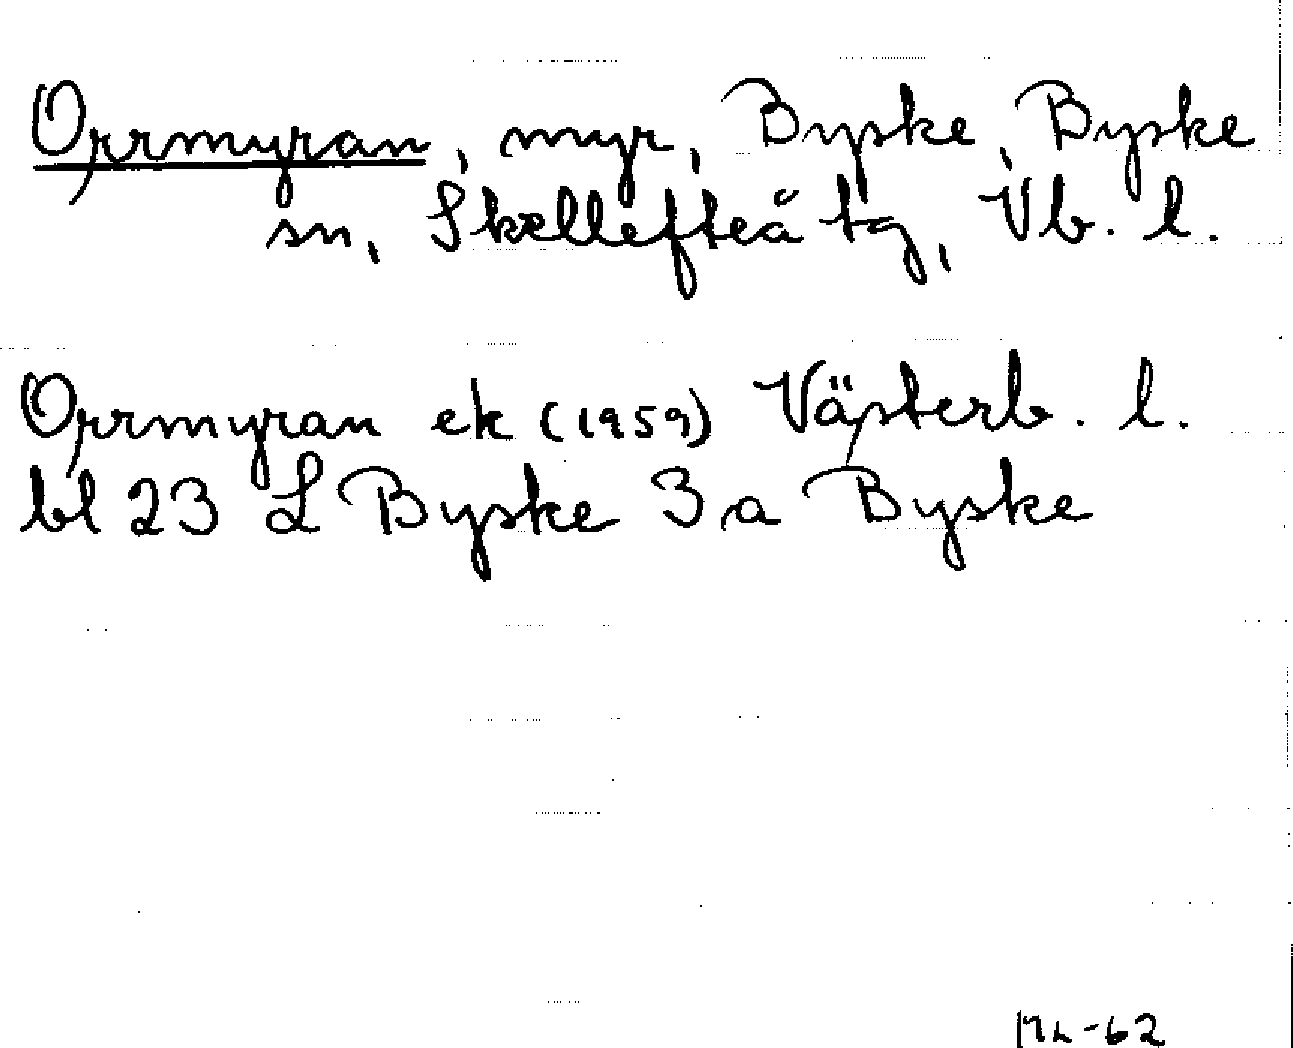 Orrmyran, myr, Byske, Byske
sn, Skellefteå tg, Vb. l.
Orrmyran ek (1959) Västerb. l.
bl 23 L Byske 3 a Byske
-62